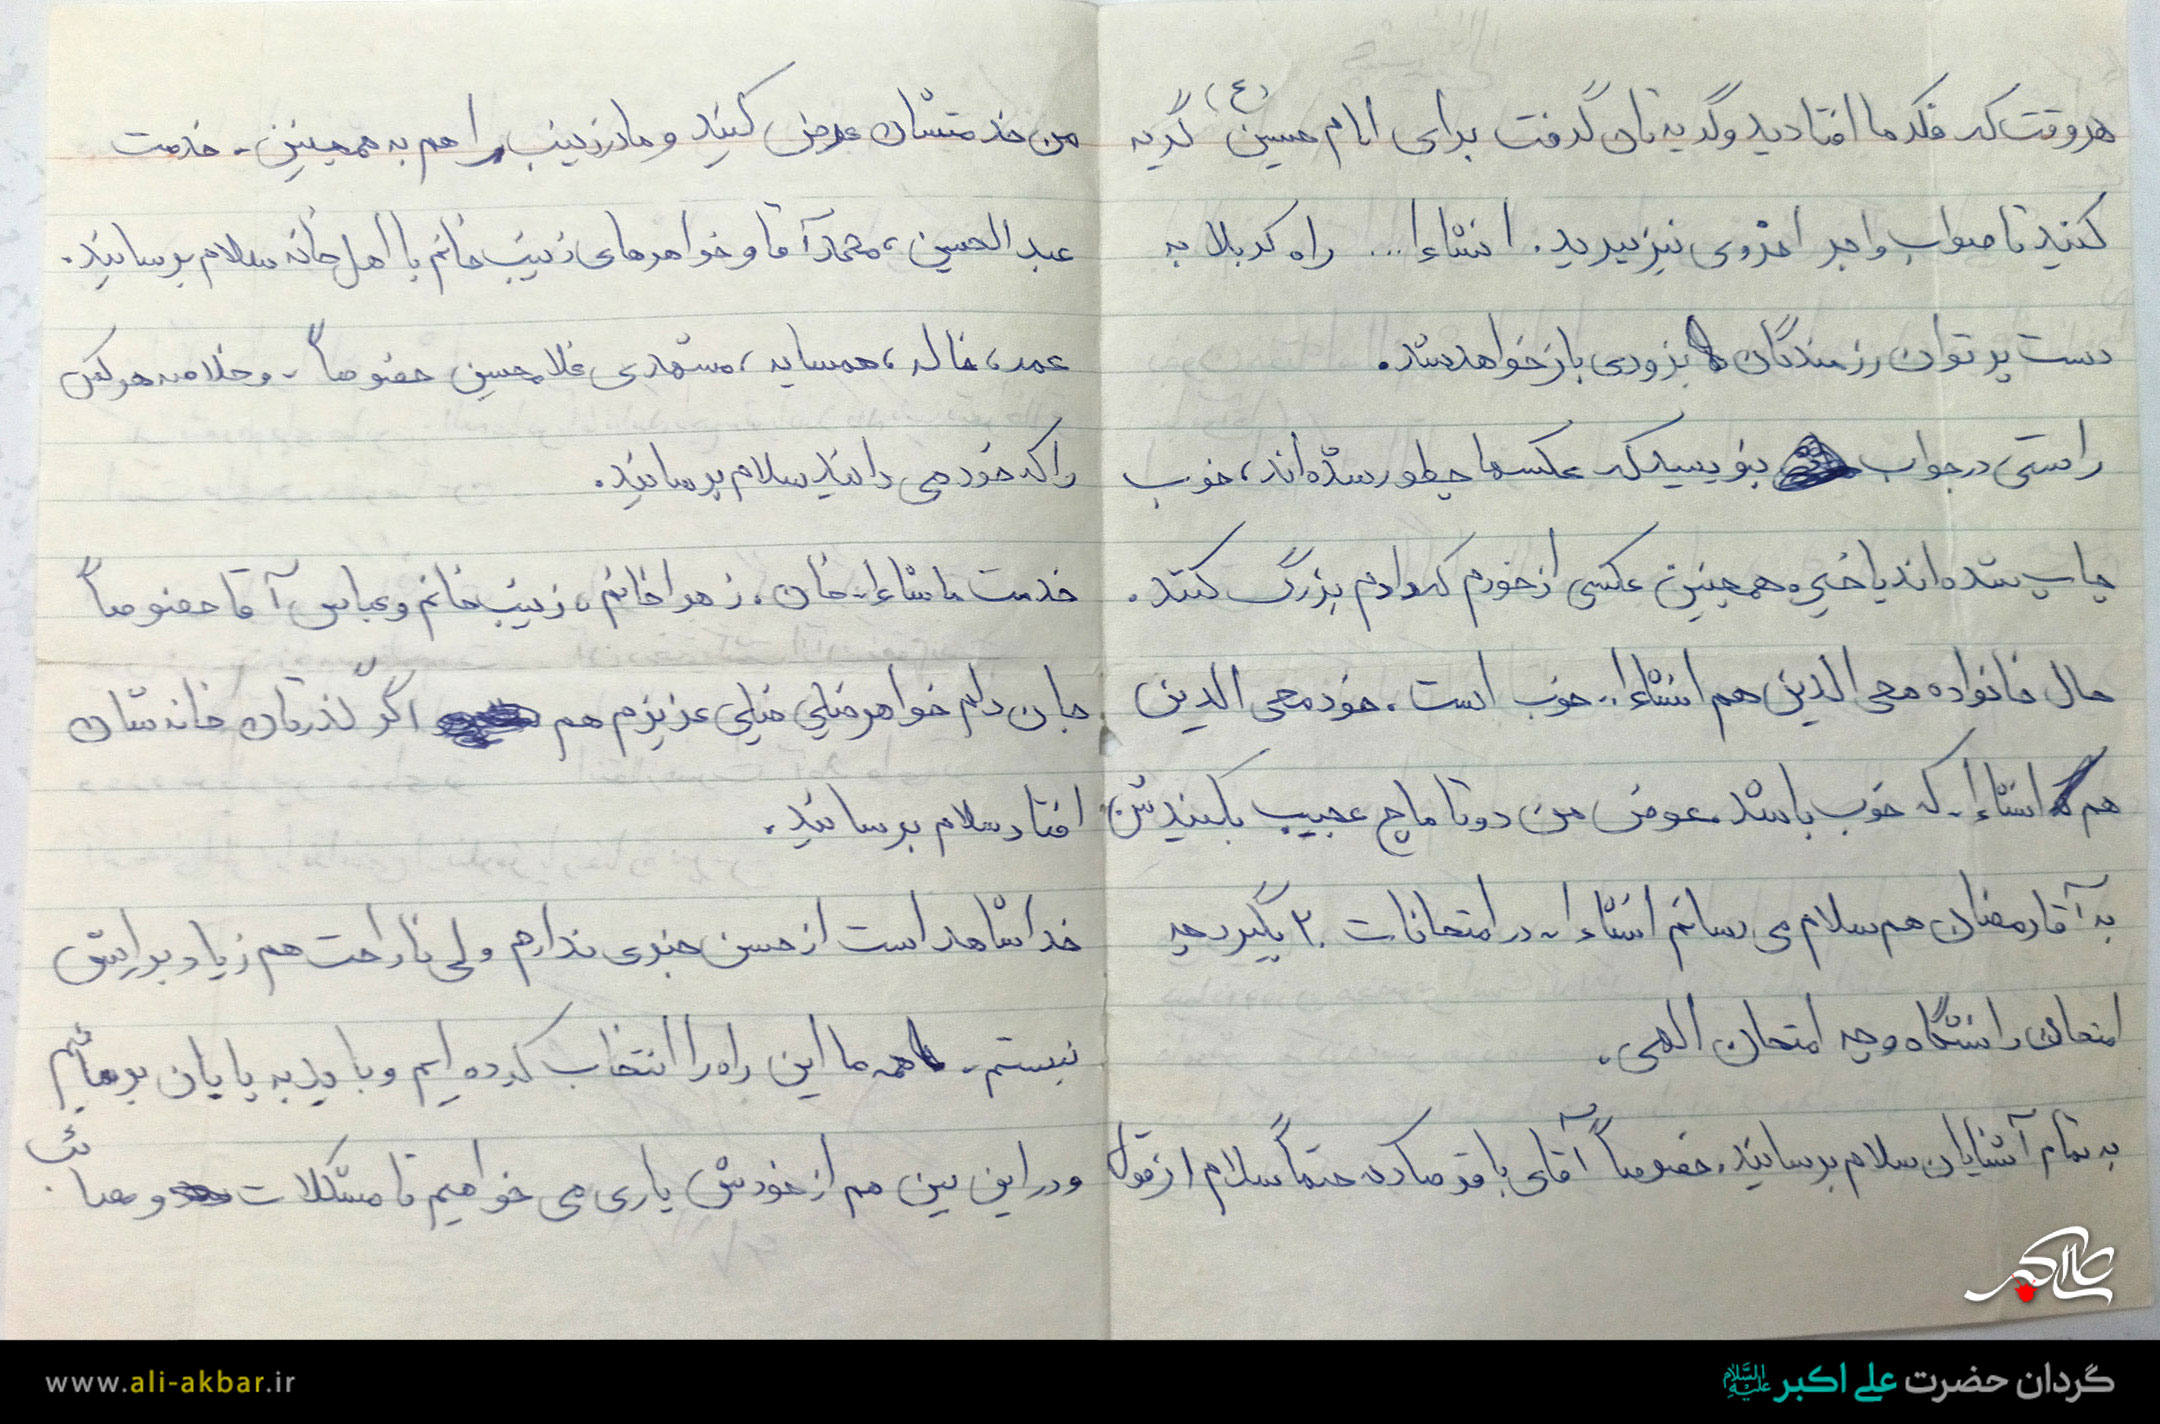 هر وقت که فکر ما افتادید و گریه تان گرفت برای امام حسین (ع) گریه
کنید تا صواب و اجر اخروی نیز ببرید. انشاءا... راه کربلا به
دست پر توان رزمندگان بزودی باز خواهد شد.
راستی در جواب بنویسید که عکسها چطور شده اند، خوب
چاپ شده اند یا خیر و همچنین عکسی از خودم که دادم بزرگ کنند.
حال خانواده محی الدین هم انشاءا.. خوب است. خود محی الدین
هم انشاءا.. که خوب باشد. عوض من دو تا ماچ عجیب بکنیدش
به آقا رمضان هم سلام می رسانم انشاءا.. در امتحانات ۲۰ بگیرد چه
امتحان دانشگاه و چه امتحان الهی.
به تمام آشنایان سلام برسانید. خصوصاً آقای باقر صادق حتماً سلام از قول
من خدمتشان عرض کنید و مادر زینب را هم به همچنین. خدمت
عبدالحسین، محمد آقا و خواهرهای زینب خانم با اهل خانه سلام برسانید.
عمه، خاله، همسایه، مشهدی غلامحسین خصوصاً. و خلاصه هر کس
را که خود می دانید سلام برسانید.
خدمت ماشاءا.. خان، زهرا خانم، زینب خانم و عباس آقا خصوصاً
جان دلم خواهر خیلی خیلی عزیزم هم اگر گذرتان خانه شان
افتاد سلام برسانید.
خدا شاهد است از حسن خبری ندارم ولی ناراحت هم زیاد برایش
نیستم. همه ما این راه را انتخاب کرده ایم و باید به پایان برسانیم
و در این بین هم از خودش یاری می خواهیم تا مشکلات و مصائب
علی اکبر
www.ali-akbar.ir
گردان حضرت علی اکبر علیه السلام